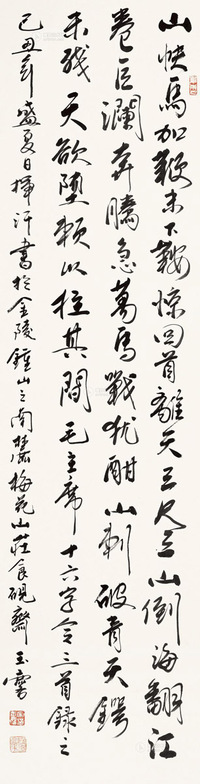 山快馬加鞭未下鞍惊回首離天三尺三山倒海翻江
卷巨瀾奔騰急萬馬戰犹酣山刺破青天鍔
未殘天欲堕賴以拄其間毛主席十六字令三首錄之
己丑年盛夏日揮汗書於金陵鍾山之南麓梅苑山莊食硯齋玉